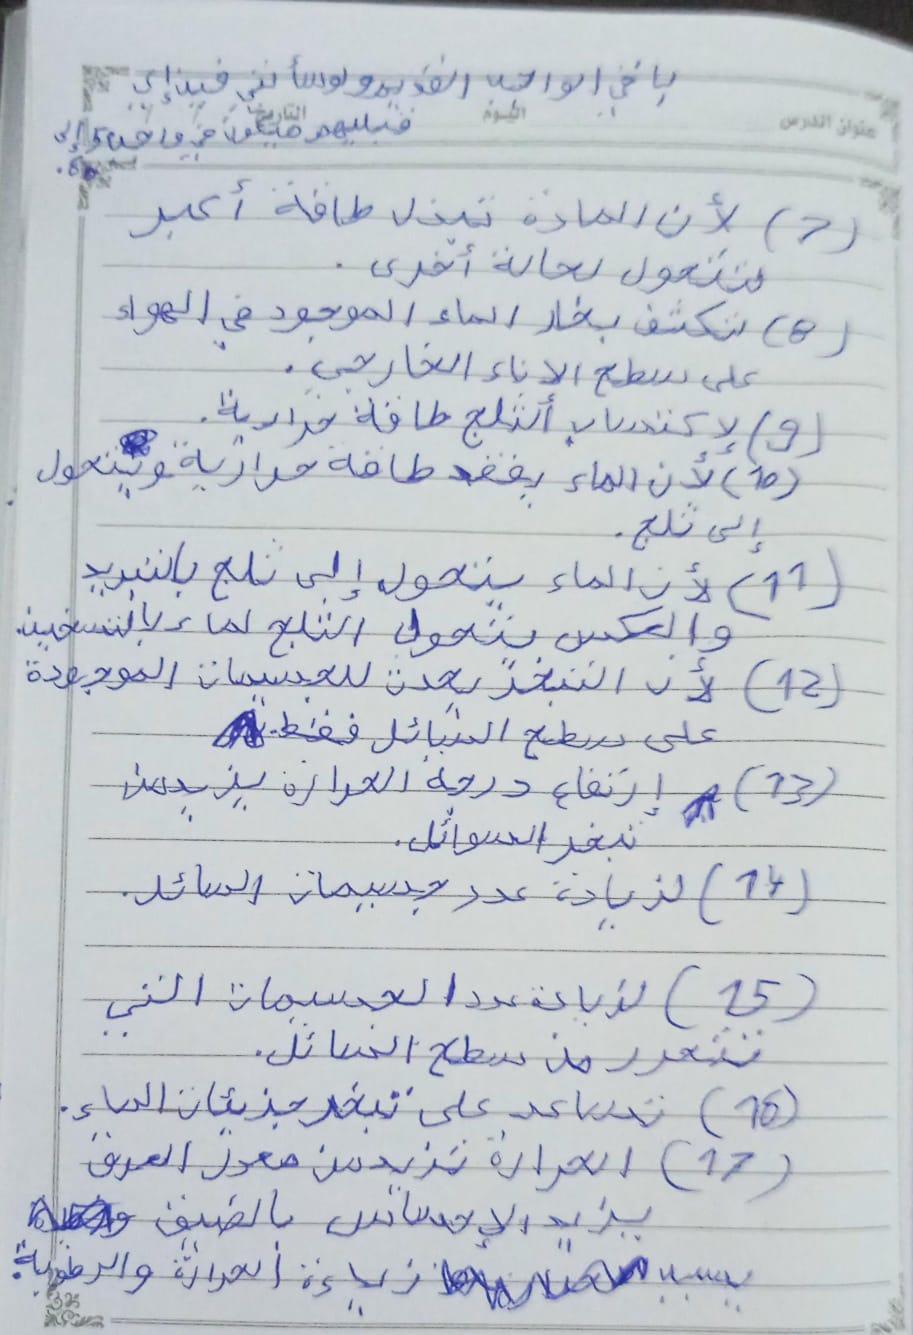 باقي الواجب القديم ولو سألتني فين إلي
عنوان الدرس اليوم التاريخ
قبليهم في واجب 5 إلى
6.
(7) لأن المادة تبذل طاقة أكبر
لتتحول لحالة أخرى.
(8) تكثف بخار الماء الموجود في الهواء
على سطح الاناء الخارجي.
(9) لإكتساب ألثلج طاقة حرارية.
(10) لأن الماء يفقد طاقة حرارية ويتحول
إلى ثلج.
(11) لأن الماء يتحول إلى ثلج بالتبريد
والعكس يتحول الثلج لماء بالتسخين.
(12) لأن التبخر يحدث للجسيمات الموجودة
على سطح السائل فقط.
(13) إرتفاع درجة الحرارة يزيد من
تبخر السوائل.
(14) لزيادة عدد جسيمات السائل.
(15) لزيادة عدد الجسيمات التي
تتحرر من سطح السائل.
(16) تساعد على تبخر جزيئات الماء.
(17) الحرارة تزيد من معدل العرق
يزيد الإحساس بالضيق
بسبب زيادة الحرارة والرطوبة.